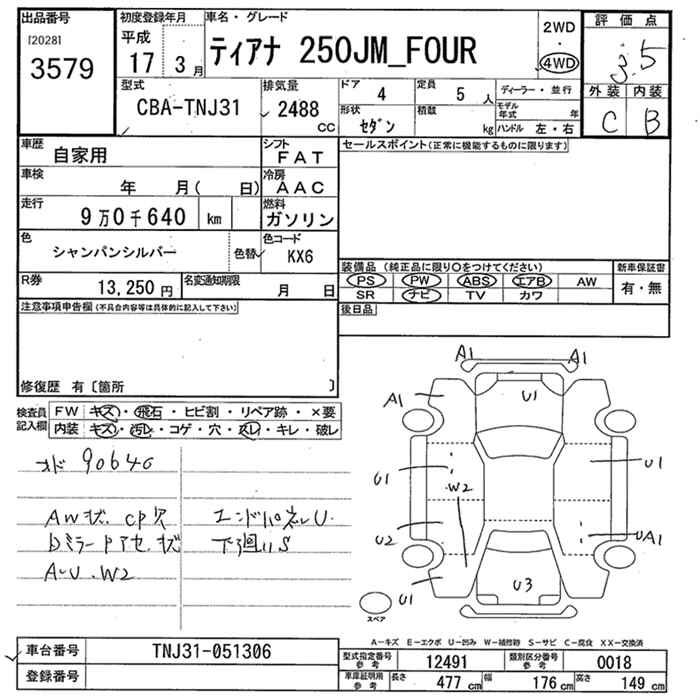 出品番号 初度登録年月 車名・グレード 評価点
[2028] 平成 ティアナ 250JM_FOUR 2WD ・ 4WD 3.5
3579 17 3月
型式 排気量 ドア 4 定員 5 人 ディーラー・並行 外装 内装
CBA-TNJ31 2488 cc 形状 セダン 積載 kg モデル年式 年 ハンドル 左・右 C B
車歴 自家用 シフト FAT セールスポイント(正常に機能するものに限ります)
車検 年 月( 日) 冷房 AAC
走行 9万0千640 km 燃料 ガソリン
色 シャンパンシルバー 色替 色コード KX6
装備品(純正品に限り○をつけてください) 新車保証書
R券 13,250円 名変通知期限 月 日 PS PW ABS エアB AW 有・無
SR ナビ TV カワ
注意事項申告欄(不具合内容等は具体的に記入して下さい) 後日品
修復歴 有〔箇所 〕
検査員記入欄 FW キズ・飛石・ヒビ割・リペア跡・×要
内装 キズ・汚レ・コゲ・穴・スレ・キレ・破レ
オド 90640
AW状.CP欠 エンドパネルU.
Dミラー アセ.状 下廻りS
A-U.W2
A1 A1
A1 U1
U1 W2 U1
U2 UA1
U1 U3
スペア
A-キズ E-エクボ U-凹み W-補修跡 S-サビ C-腐食 XX-交換済
車台番号 TNJ31-051306 型式指定番号 参考 12491 類別区分番号 参考 0018
登録番号 車庫証明用 参考 長さ 477 cm 幅 176 cm 高さ 149 cm